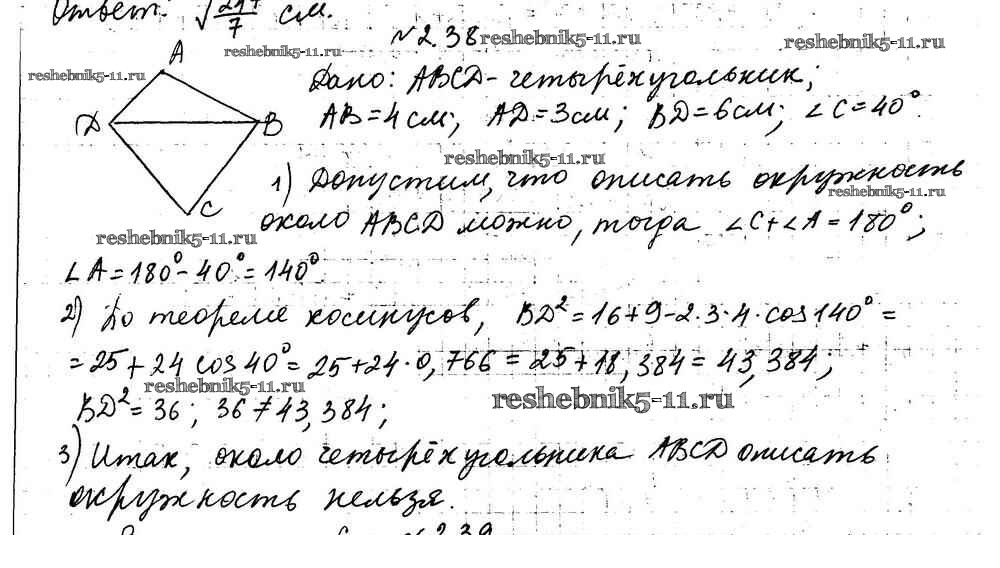 Ответ: √ 7 см.
№2.38 reshebnik5-11.ru reshebnik5-11.ru
reshebnik5-11.ru
reshebnik5-11.ru
A
Д B
C
Дано: ABCD - четырёхугольник;
AB=4см; AD=3см; BD=6см; ∠C=40°.
reshebnik5-11.ru
1) Допустим, что описать окружность
reshebnik5-11.ru
около ABCD можно, тогда ∠C+∠A=180°;
reshebnik5-11.ru
∠A=180°-40°=140°
2) По теореме косинусов, BD²=16+9-2·3·4·cos140°=
=25+24cos40°=25+24·0,766=25+18,384=43,384;
reshebnik5-11.ru
reshebnik5-11.ru
BD²=36; 36≠43,384;
3) Итак, около четырёхугольника ABCD описать
окружность нельзя.
№2.39